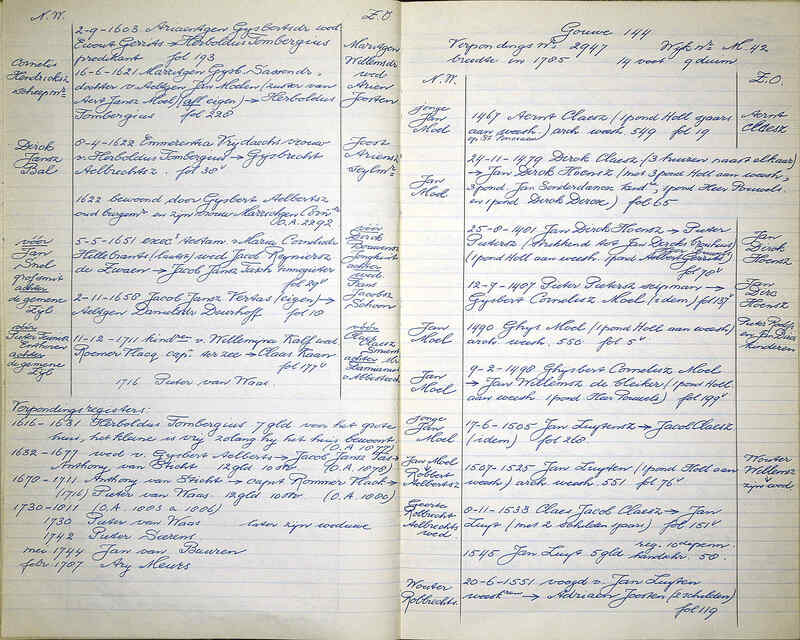 N.W.
Z.O.
2-9-1603 Ariaentgen Gysbertsdr wed
Ewout Gerrits → Herboldus Tombergius
predikant fol 193
Cornelis
Hendricksz
scheepmr
16-6-1621 Maritgen Gysb. Sassendr.
dochter v Aeltgen Jan Moelen (zuster van
Aert Jansz Moel) (afl eigen) → Herboldus
Tombergius fol 228
Maritgen
Willemsdr
wed
Arien
Joosten
Derck
Jansz
Bal
8-4-1622 Emmerentia Vrydaechs vrouw
v. Herboldus Tombergius → Gysbrecht
Aelbrechtsz. fol 38v
Joost
Ariensz
Seylmr
1622 bewoond door Gysbert Aelbertsz
oud burgemr en zyn vrouw Marrichgen
(O.A. 2292
vóór
Jan
Snel
grofsmit
achter
de gemene
Zyl
5-5-1651 execr testam v Maria Cornelisdr
Hellebrants (laatst) wed Jacob Reyniersz
de Zwaen → Jacob Jansz
fol 29v
2-11-1658 Jacob Jansz Vertas (eigen) →
Aeltgen Danielsdr Deurhoff fol 10
vóór
Dirck
Bouwensz
Jonghuit
achter
wed.
Frans
Jacobsz
Schoon
vóór
Pieter
Eerthoven
achter
de gemene
Zyl
11-12-1711 kindren v. Willemyna Kalf wed
Roemer Vlacq capt. ter zee → Claas Kaan
fol 177v
vóór
Claas
achter Mr
Damiaans
v Alberteck
1716 Pieter van Waas.
Verpondingsregisters:
1616-1631 Herboldus Tombergius 7 gld voor het grote
huis, het kleine is vry zolang hy het huis bewoont.
(O.A. 1077)
1632-1677 wed v. Gysbert Aelberts → Jacob Jansz Tas →
Anthony van Sticht 12 gld 10 str (O.A. 1078)
1678-1711 Anthony van Sticht → capt Rommer Vlack →
(1716) Pieter van Waas. 12 gld 10 str (O.A. 1080)
1730-1811 (O.A. 1083 a 1086)
1730 Pieter van Waas later zyn weduwe
1742 Pieter Sierens
mei 1744 Jan van Buuren
febr. 1787 Ary Meurs
Gouwe 144
Verpondings Nr. 2947 Wyk Nr M.42
breedte in 1785 14 voet 9 duim
N.W.
Z.O.
jonge
Jan
Moel
1467 Aernt Claesz (1 pond Holl sjaars
aan weesh) arch weesh. 549 fol 19
Aernt
Claesz
Jan
Moel
24-11-1479 Derck Claesz (3 huizen naast elkaar)
→ Jan Derck Hoensz (met 3 pond Holl aan weesh,
3 pond Jan Sonderdancx kindr, 1 pond Heer Pouwels
en 1 pond Derck Dircxz) fol 65
25-8-1481 Jan Derck Hoensz → Pieter
Pietersz (strekkend tot Jan Dercks brouhuis)
(1 pond Holl aan weesh, 1 pond Aelbert Gerritsz)
fol 70v
Jan
Derck
Hoensz
12-7-1487 Pieter Pietersz scipman →
Gysbert Cornelisz Moel (idem) fol 181v
Jan
Derc
Hoensz
Jan
Moel
1490 Ghys Moel (1 pond Holl aan weesh)
arch weesh. 550 fol 5v
en Jan Dircx
kinderen
Jan
Moel
9-2-1498 Ghysbert Cornelisz Moel
→ Jan Willemsz de bleiker (1 pond Holl
aan weesh 1 pond Heer Pouwels) fol 197v
jonge
Jan
Moel
17-6-1505 Jan Luytensz → Jacob Claesz
(idem) fol 268
Jan Moel
v
Robbert
Aelbertsz
1507-1525 Jan Luyten (1 pond Holl aan
weesh) arch weesh. 551 fol 76v
Wouter
Willemsz
zyn wed
Geerte
Robbrecht
Aelbrechts
wed.
8-11-1533 Claes Jacob Claesz → Jan
Luyt (met 2 schilden sjaars) fol 151v
reg. 10e penn.
1545 Jan Luyt 5 gld handschr. 50.
Wouter
Robbrechts.
20-6-1551 voogd v. Jan Luyten
weeskren → Adriaen Joosten (2 schilden)
fol 119